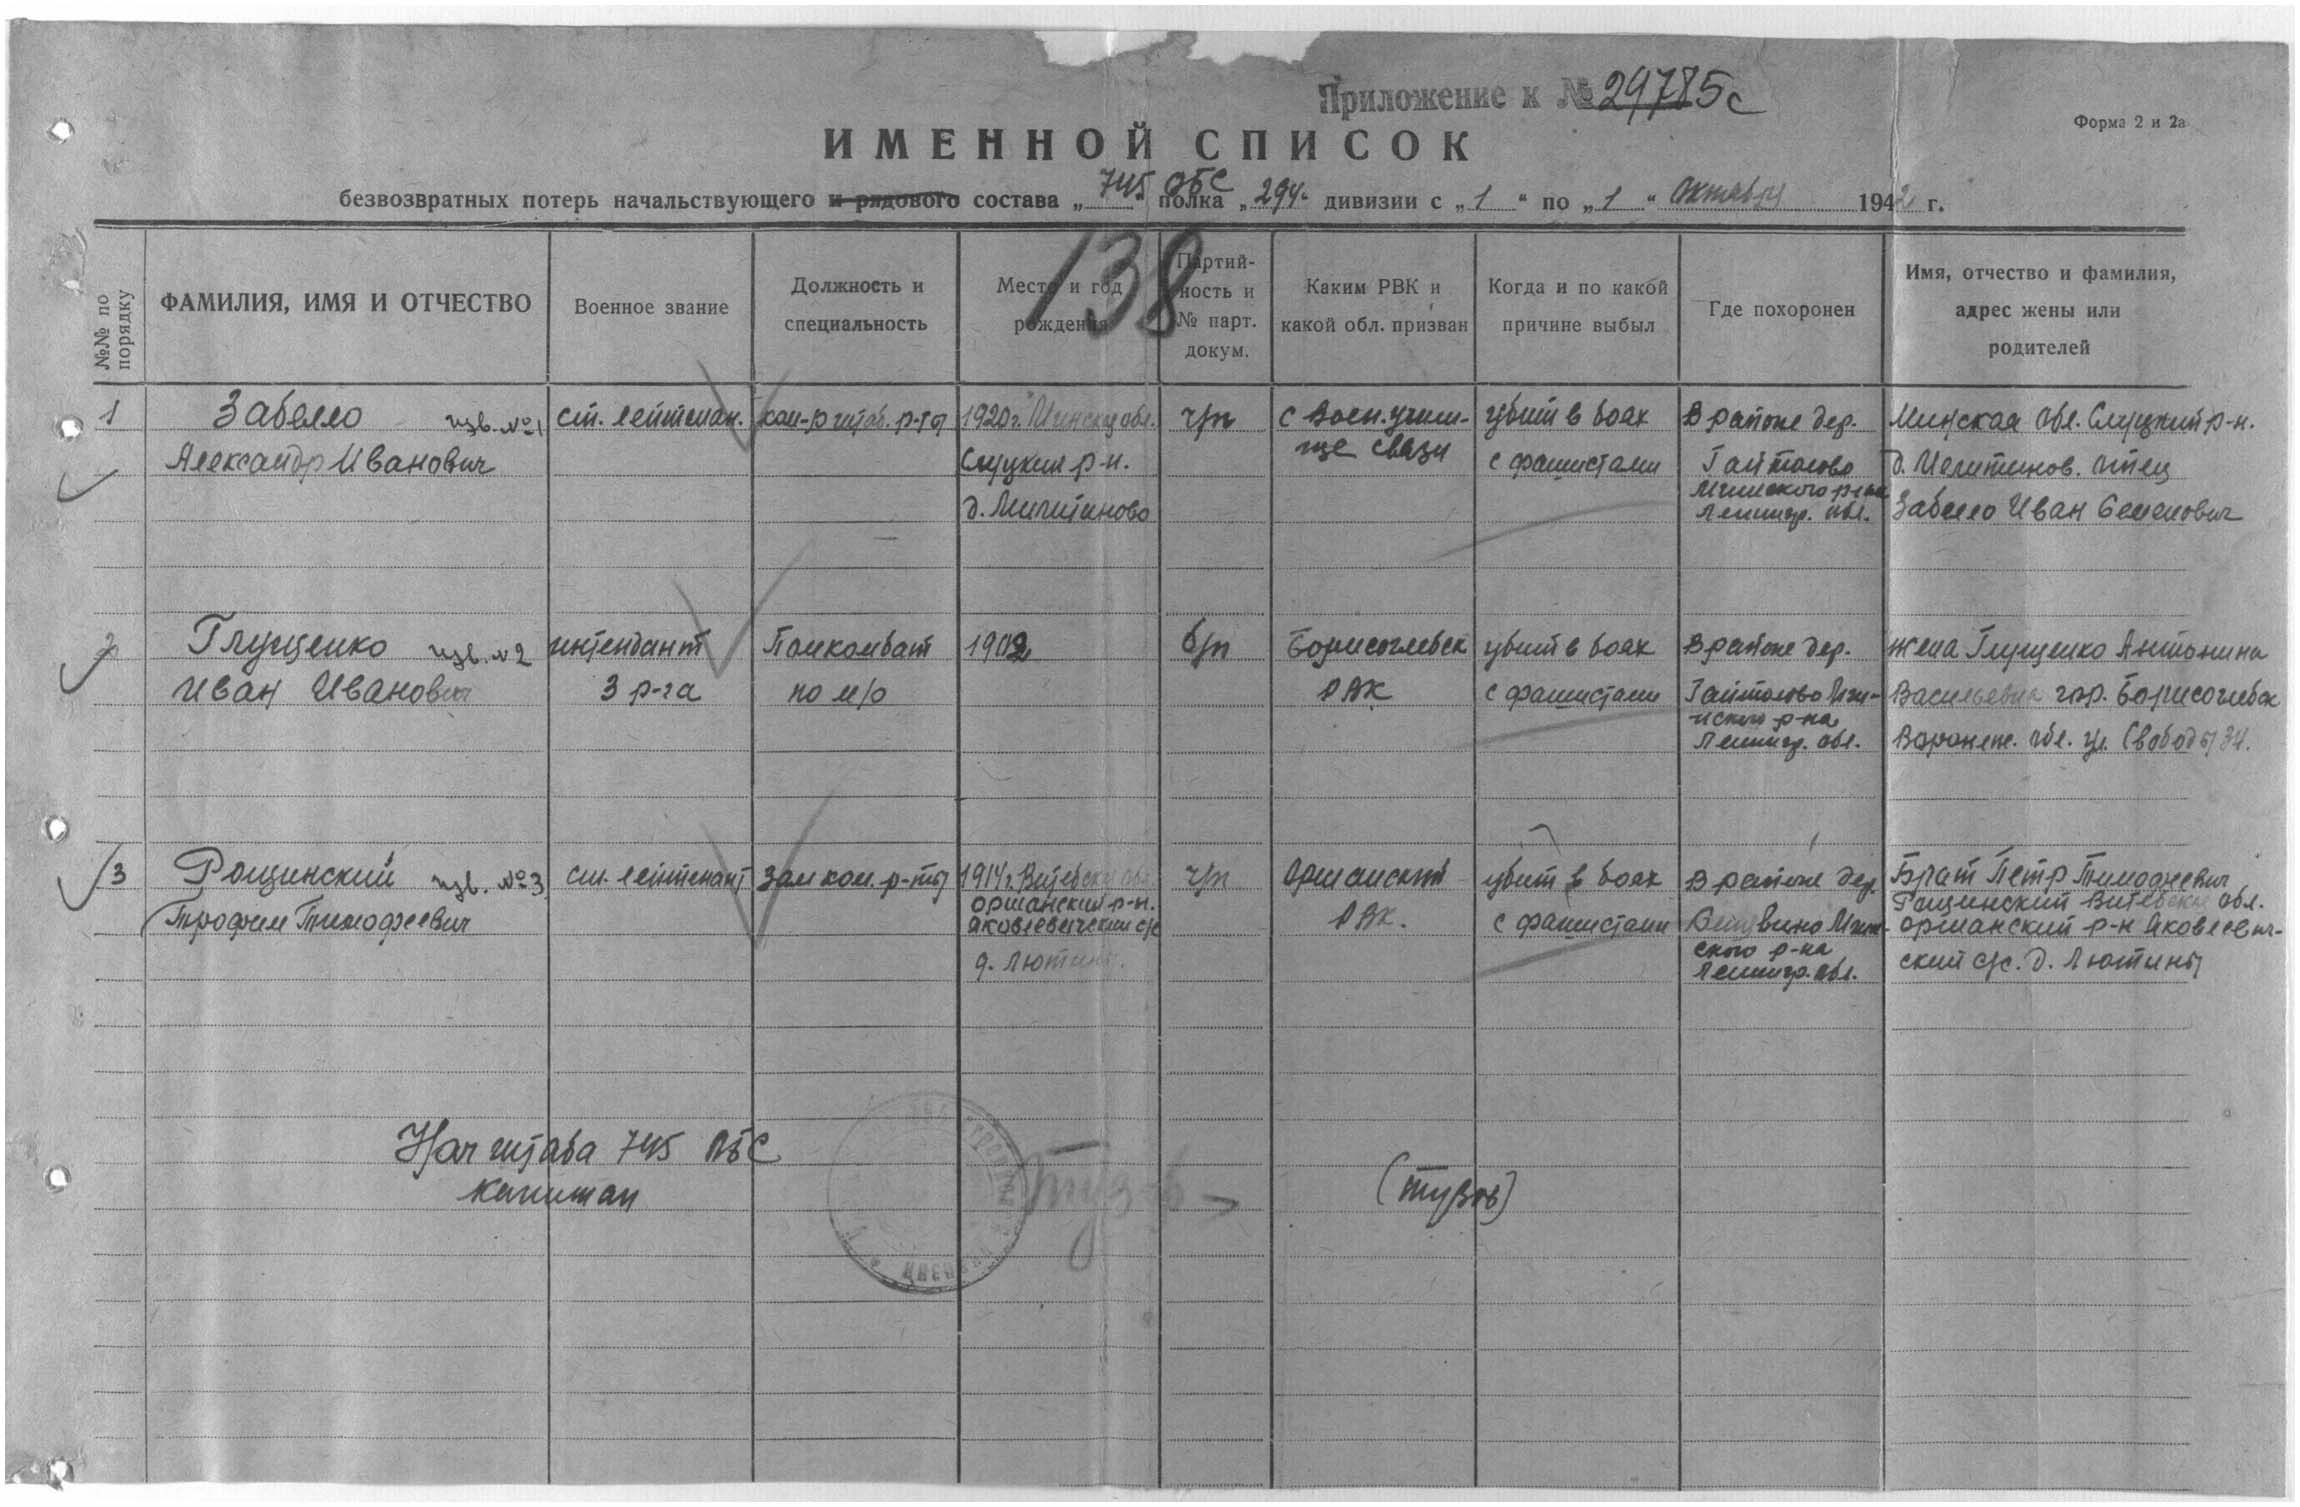 Приложение к № 29785с
Форма 2 и 2а
ИМЕННОЙ СПИСОК
безвозвратных потерь начальствующего и рядового состава „745 ОБС полка „294" дивизии с „1" по „1" Октября 1942 г.
138
№№ по порядку
ФАМИЛИЯ, ИМЯ И ОТЧЕСТВО
Военное звание
Должность и
специальность
Место и год
рождения
Партий-
ность и
№ парт.
докум.
Каким РВК и
какой обл. призван
Когда и по какой
причине выбыл
Где похоронен
Имя, отчество и фамилия,
адрес жены или
родителей
1
Забелло изв. №1
Александр Иванович
ст. лейтенан.
ком-р штаб. р-ты
1920 г. Минская обл.
Слуцкий р-н.
д.
ч/п
с Воен. учили-
ще связи
убит в боях
с фашистами
В районе дер.
Гайтолово
Мгинского р-на
Ленингр. обл.
Минская обл. Слуцкий р-н.
д. отец
Забелло Иван Семенович
2
Глущенко изв. №2
Иван Иванович
интендант
3 р-га
Помкомбат
по м/о
1902
б/п
Борисоглебск
РВК
убит в боях
с фашистами
В районе дер.
Гайтолово Мги-
нского р-на
Ленингр. обл.
жена Глущенко Антонина
Васильевна гор. Борисоглебск
Воронеж. обл. ул. Свободы 34.
3
Рощинский изв. №3
Трофим Тимофеевич
ст. лейтенант
зам ком. р-ты
1914 г. Витебская обл.
Оршанский р-н.
Яковлевичский с/с
д. Лютины.
ч/п
Оршанский
РВК.
убит в боях
с фашистами
В районе дер.
Мгин-
ского р-на
Ленингр. обл.
Брат Петр Тимофеевич
Рощинский Витебская обл.
Оршанский р-н Яковлевич-
ский с/с. д. Лютины
Нач штаба 745 ОБС
капитан
Тузов
(Тузов)